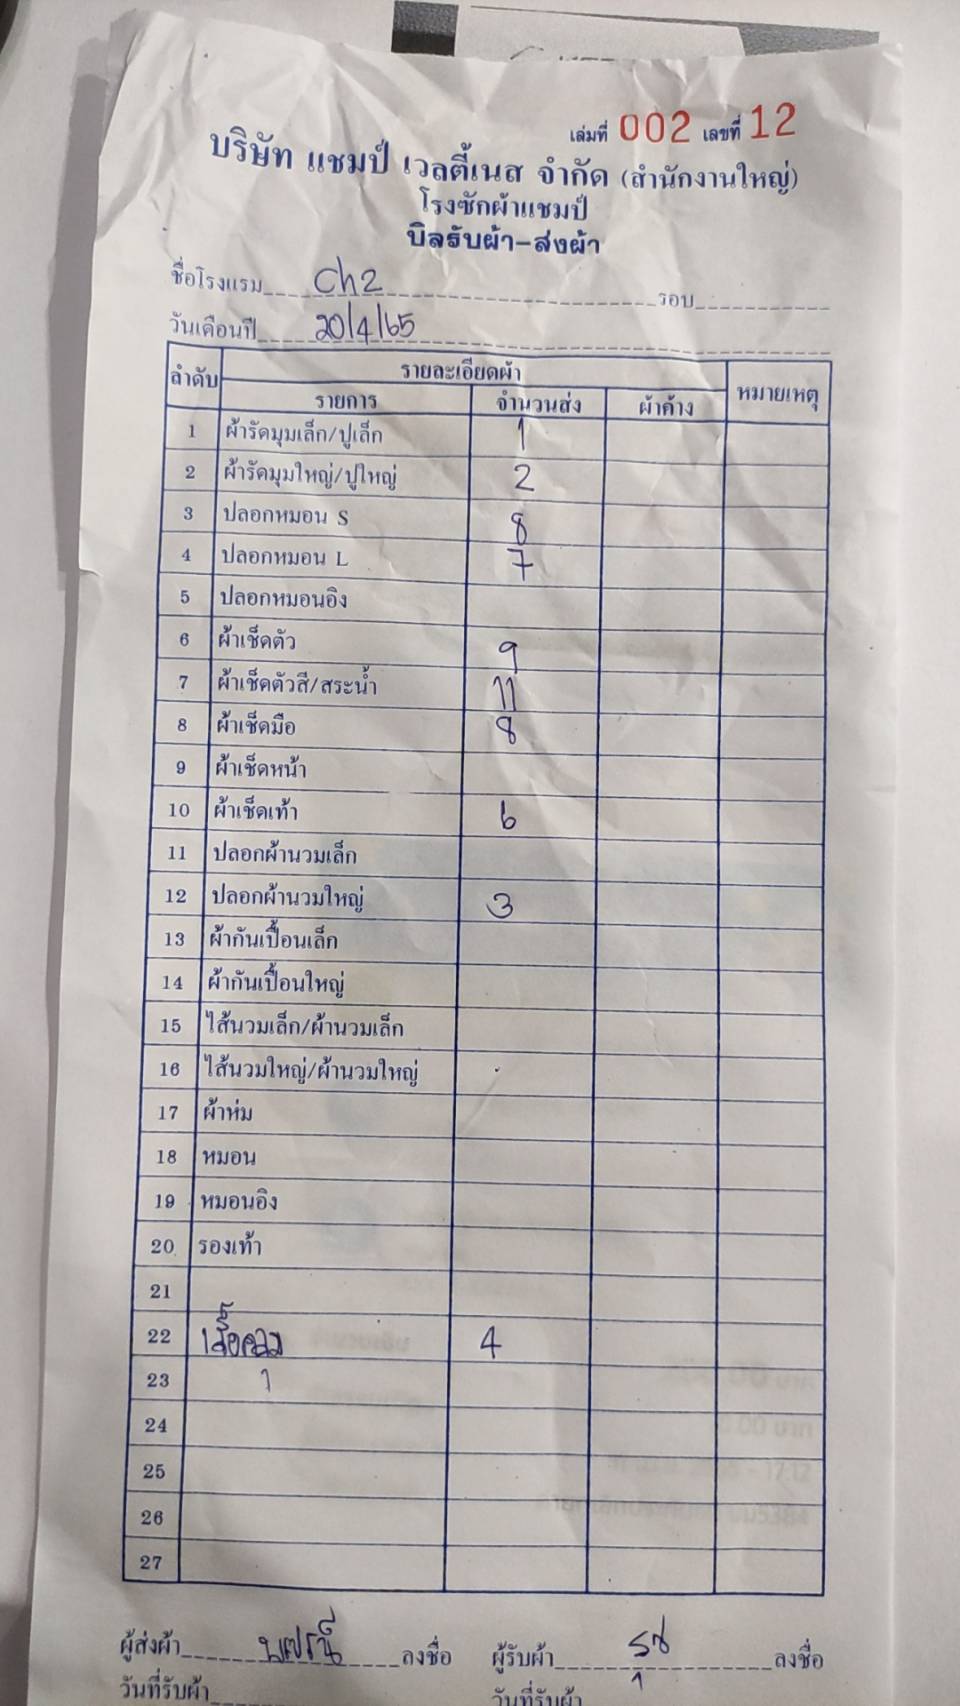 เล่มที่ 002 เลขที่ 12
บริษัท แชมป์ เวลตี้เนส จำกัด (สำนักงานใหญ่)
โรงซักผ้าแชมป์
บิลรับผ้า-ส่งผ้า
ชื่อโรงแรม Ch2 รอบ
วันเดือนปี 20/4/65
ลำดับ รายละเอียดผ้า หมายเหตุ
รายการ จำนวนส่ง ผ้าค้าง
1 ผ้ารัดมุมเล็ก/ปูเล็ก 1
2 ผ้ารัดมุมใหญ่/ปูใหญ่ 2
3 ปลอกหมอน S 8
4 ปลอกหมอน L 7
5 ปลอกหมอนอิง
6 ผ้าเช็ดตัว 9
7 ผ้าเช็ดตัวสี/สระน้ำ 11
8 ผ้าเช็ดมือ 8
9 ผ้าเช็ดหน้า
10 ผ้าเช็ดเท้า 6
11 ปลอกผ้านวมเล็ก
12 ปลอกผ้านวมใหญ่ 3
13 ผ้ากันเปื้อนเล็ก
14 ผ้ากันเปื้อนใหญ่
15 ไส้นวมเล็ก/ผ้านวมเล็ก
16 ไส้นวมใหญ่/ผ้านวมใหญ่
17 ผ้าห่ม
18 หมอน
19 หมอนอิง
20 รองเท้า
21
22 เสื้อคลุม 4
23
24
25
26
27
ผู้ส่งผ้า ลงชื่อ ผู้รับผ้า ลงชื่อ
วันที่รับผ้า วันที่รับผ้า